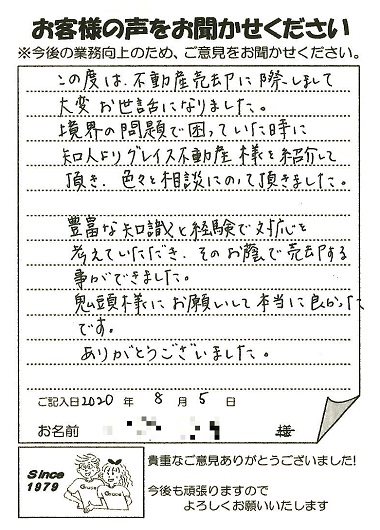 お客様の声をお聞かせください
※今後の業務向上のため、ご意見をお聞かせください。
この度は、不動産売却に際しまして
大変お世話になりました。
境界の問題で困っていた時に
知人よりグレイス不動産様を紹介して
頂き、色々と相談にのって頂きました。
豊富な知識と経験で対応を
考えていただき、そのお蔭で売却する
事ができました。
鬼頭様にお願いして本当に良かった
です。
ありがとうございました。
ご記入日2020年 8月 5日
お名前 様
Since
1979
Grace
Grace
貴重なご意見ありがとうございました!
今後も頑張りますので
よろしくお願いいたします